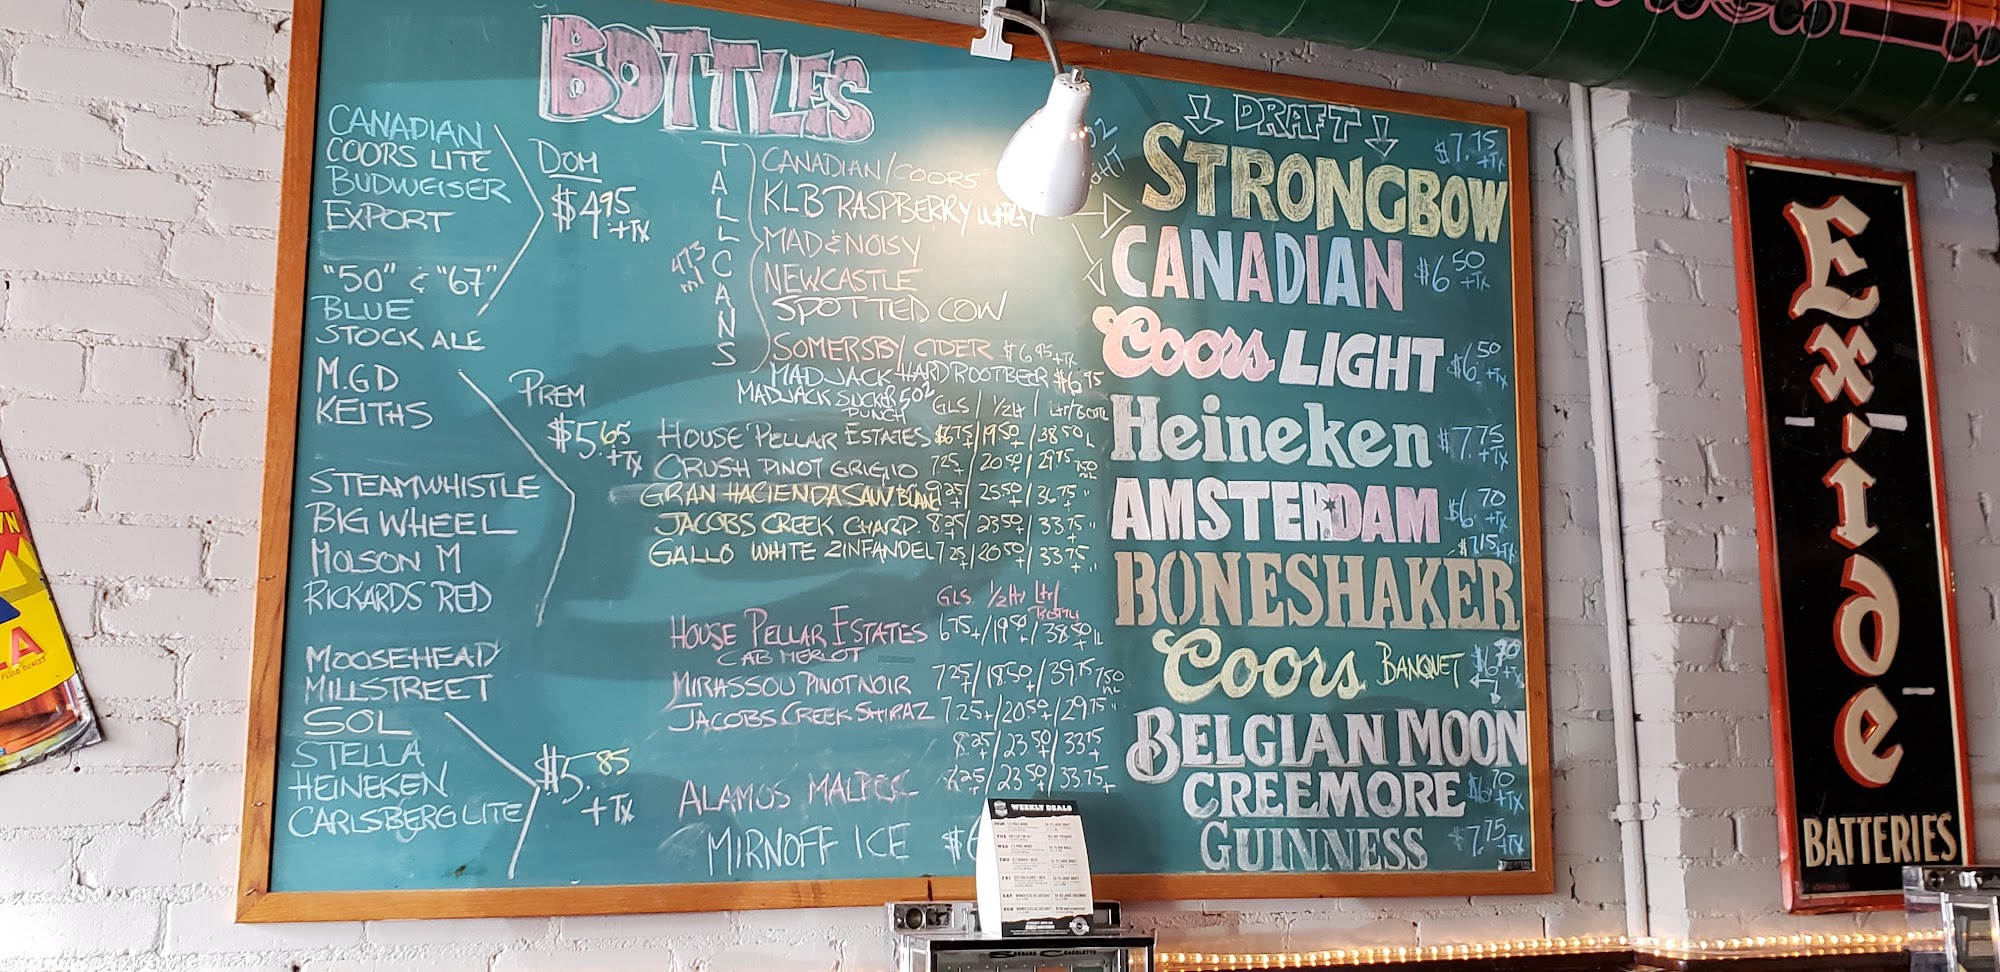 BOTTLES
CANADIAN
COORS LITE
BUDWEISER
EXPORT
"50" & "67"
BLUE
STOCK ALE
DOM
$4.95
+TX
M.GD
KEITHS
STEAMWHISTLE
BIG WHEEL
MOLSON M
RICKARDS RED
PREM
$5.65
+TX
MOOSEHEAD
MILLSTREET
SOL
STELLA
HEINEKEN
CARLSBERG LITE
$5.85
+TX
TALL CANS
473
ml
CANADIAN/COORS
KLB RASPBERRY WHEAT
MAD & NOISY
NEWCASTLE
SPOTTED COW
SOMERSBY CIDER $6.95+TX
MAD JACK HARD ROOTBEER $6.95
MADJACK SUCKER PUNCH 502
GLS / ½ Ltr / Ltr/BOTTL
HOUSE PELLAR ESTATES $6.75+/19.50+/38.50 L
CRUSH PINOT GRIGIO 7.25+/20.50+/29.75 750 ML
GRAN HACIENDA SAUV BLANC 9.25+/25.50+/36.75+ "
JACOBS CREEK CHARD. 8.25+/23.50+/33.75+ "
GALLO WHITE ZINFANDEL 7.25+/20.50+/33.75+ "
GLS ½ Ltr Ltr/
BOTTLE
HOUSE PELLAR ESTATES 6.75+/19.50+/38.50 1L
CAB MERLOT
MIRASSOU PINOT NOIR 7.25+/18.50+/39.75 750 ML
JACOBS CREEK SHIRAZ 7.25+/20.50+/29.75 "
8.25+/23.50+/33.75+
ALAMOS MALBEC 8.25+/23.50+/33.75+
MIRNOFF ICE $6
DRAFT
STRONGBOW $7.75 +TX
CANADIAN $6.50 +TX
Coors LIGHT $6.50 +TX
Heineken $7.75 +TX
AMSTERDAM $6.70 +TX
BONESHAKER $7.15+TX
Coors BANQUET $6.70 +TX
BELGIAN MOON
CREEMORE $6.70 +TX
GUINNESS $7.75 +TX
WEEKLY DEALS
MON
TUE
WED
THU
FRI
SAT
SUN
Exide
BATTERIES
WN
LA
FLUID OUNCES